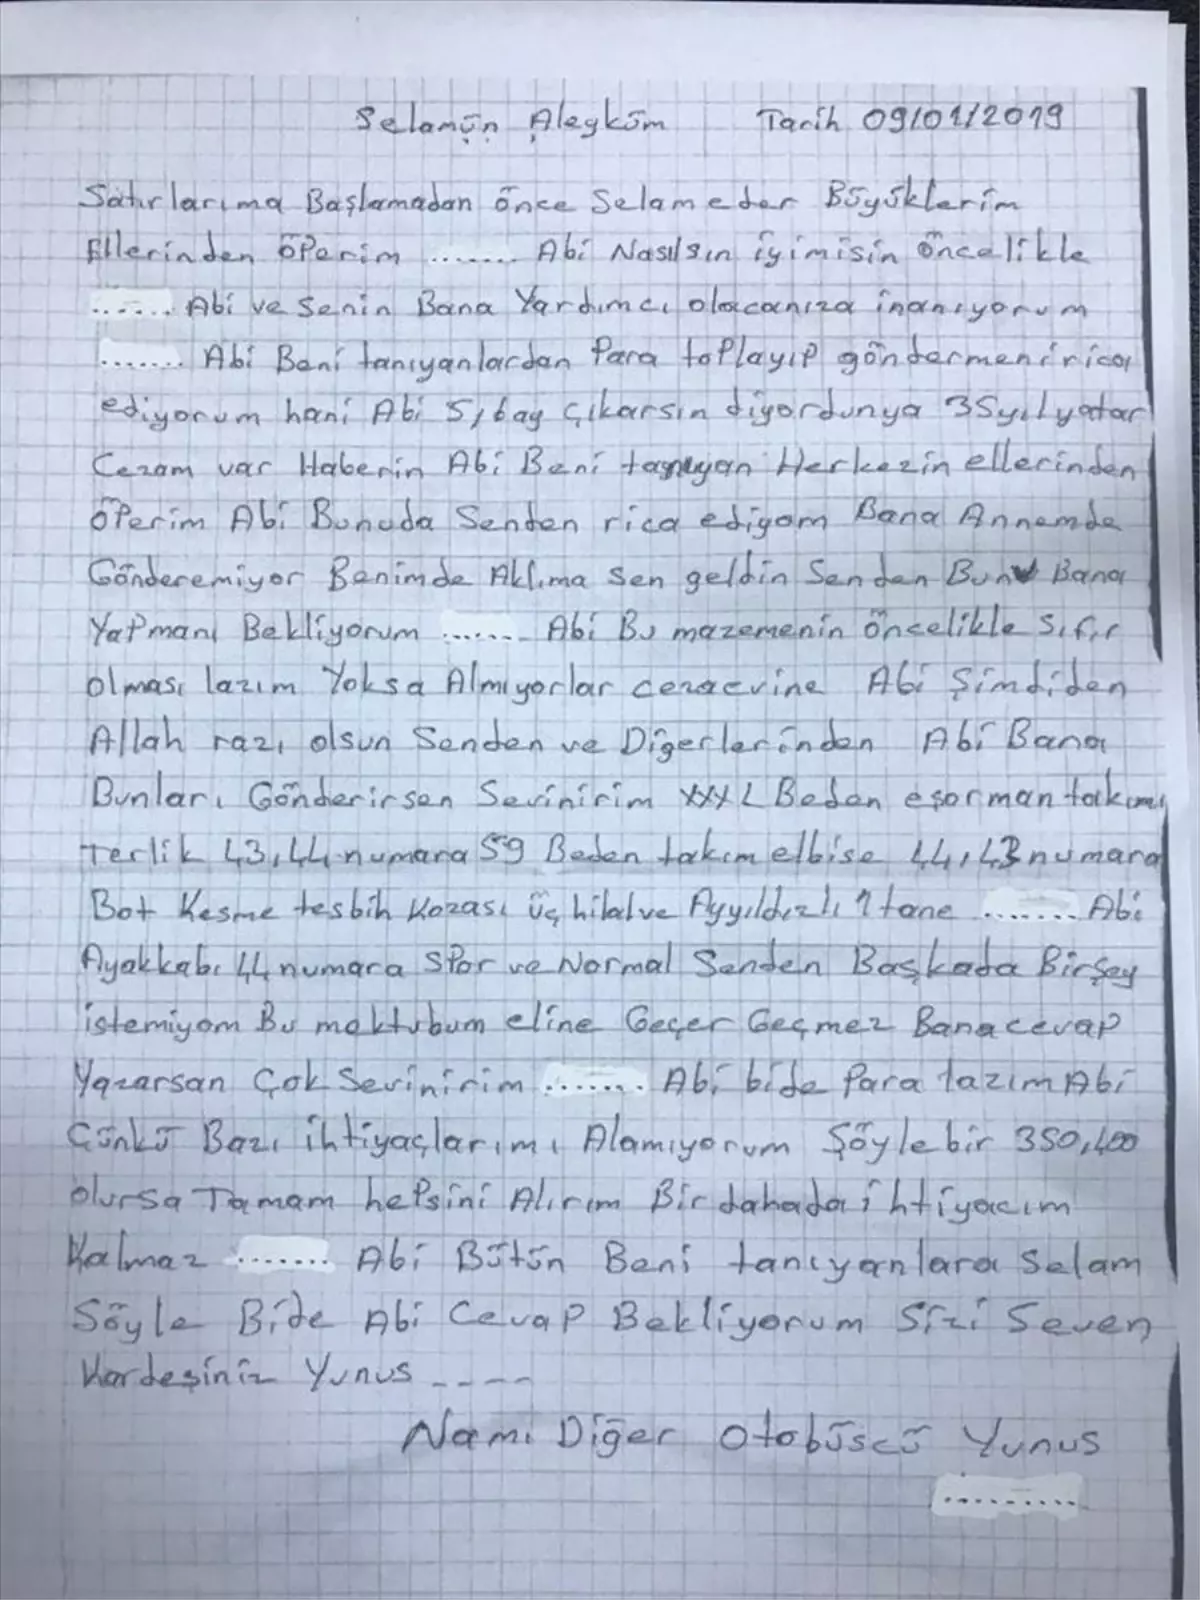 Selamün Aleyküm Tarih 09/01/2019
Satırlarıma Başlamadan önce Selam eder Büyüklerim
Ellerinden öperim ....... Abi Nasılsın iyimisin öncelikle
...... Abi ve Senin Bana Yardımcı olacanıza inanıyorum
....... Abi Beni tanıyanlardan Para toplayıp göndermeni rica
ediyorum hani Abi 5,6ay çıkarsın diyordunya 35yıl yatar
Cezam var Haberin Abi Beni tanıyan Herkezin ellerinden
öperim Abi Bunuda Senden rica ediyom Bana Annemde
Gönderemiyor Benimde Aklıma sen geldin Senden Bunu Bana
Yapmanı Bekliyorum ...... Abi Bu mazemenin öncelikle sıfır
olması lazım Yoksa Almıyorlar cezaevine Abi Şimdiden
Allah razı olsun Senden ve Diğerlerinden Abi Bana
Bunları Gönderirsen Sevinirim XXXL Beden eşorman takımı
Terlik 43,44 numara 59 Beden takım elbise 44,43 numara
Bot Kesme tesbih Kozası üç hilal ve Ayyıldızlı 1 tane ....... Abi
Ayakkabı 44 numara Spor ve Normal Senden Başkada Birşey
istemiyom Bu mektubum eline Geçer Geçmez Bana cevap
Yazarsan Çok Sevinirim ....... Abi bide Para lazım Abi
Çünkü Bazı ihtiyaçlarımı Alamıyorum Şöyle bir 350,400
olursa Tamam hepsini Alırım Bir dahada ihtiyacım
Kalmaz ....... Abi Bütün Beni tanıyanlara Selam
Söyle Bide Abi Cevap Bekliyorum Sizi Seven
Kardeşiniz Yunus ----
Nami Diğer Otobüscü Yunus
.........